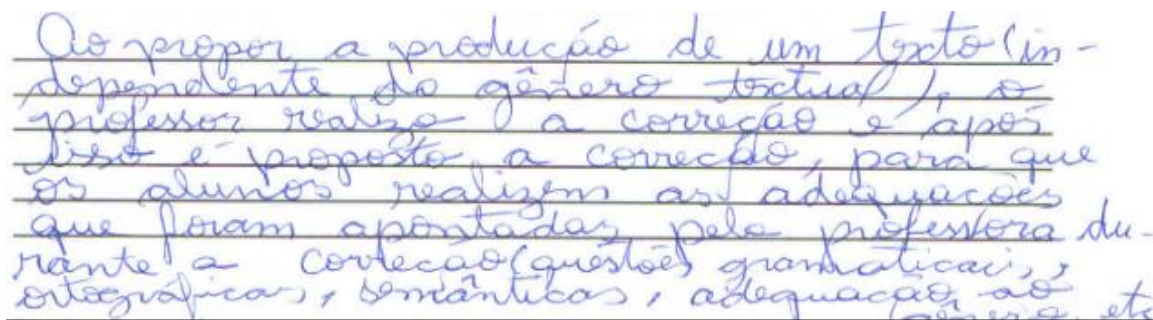 Ao propor a produção de um texto (in-
dependente do gênero textual), o
professor realiza a correção e após
isso é proposto a correção, para que
os alunos realizem as adequações
que foram apontadas pela professora du-
rante a correção (questões gramaticais,
ortográficas, semânticas, adequação ao
gênero, etc